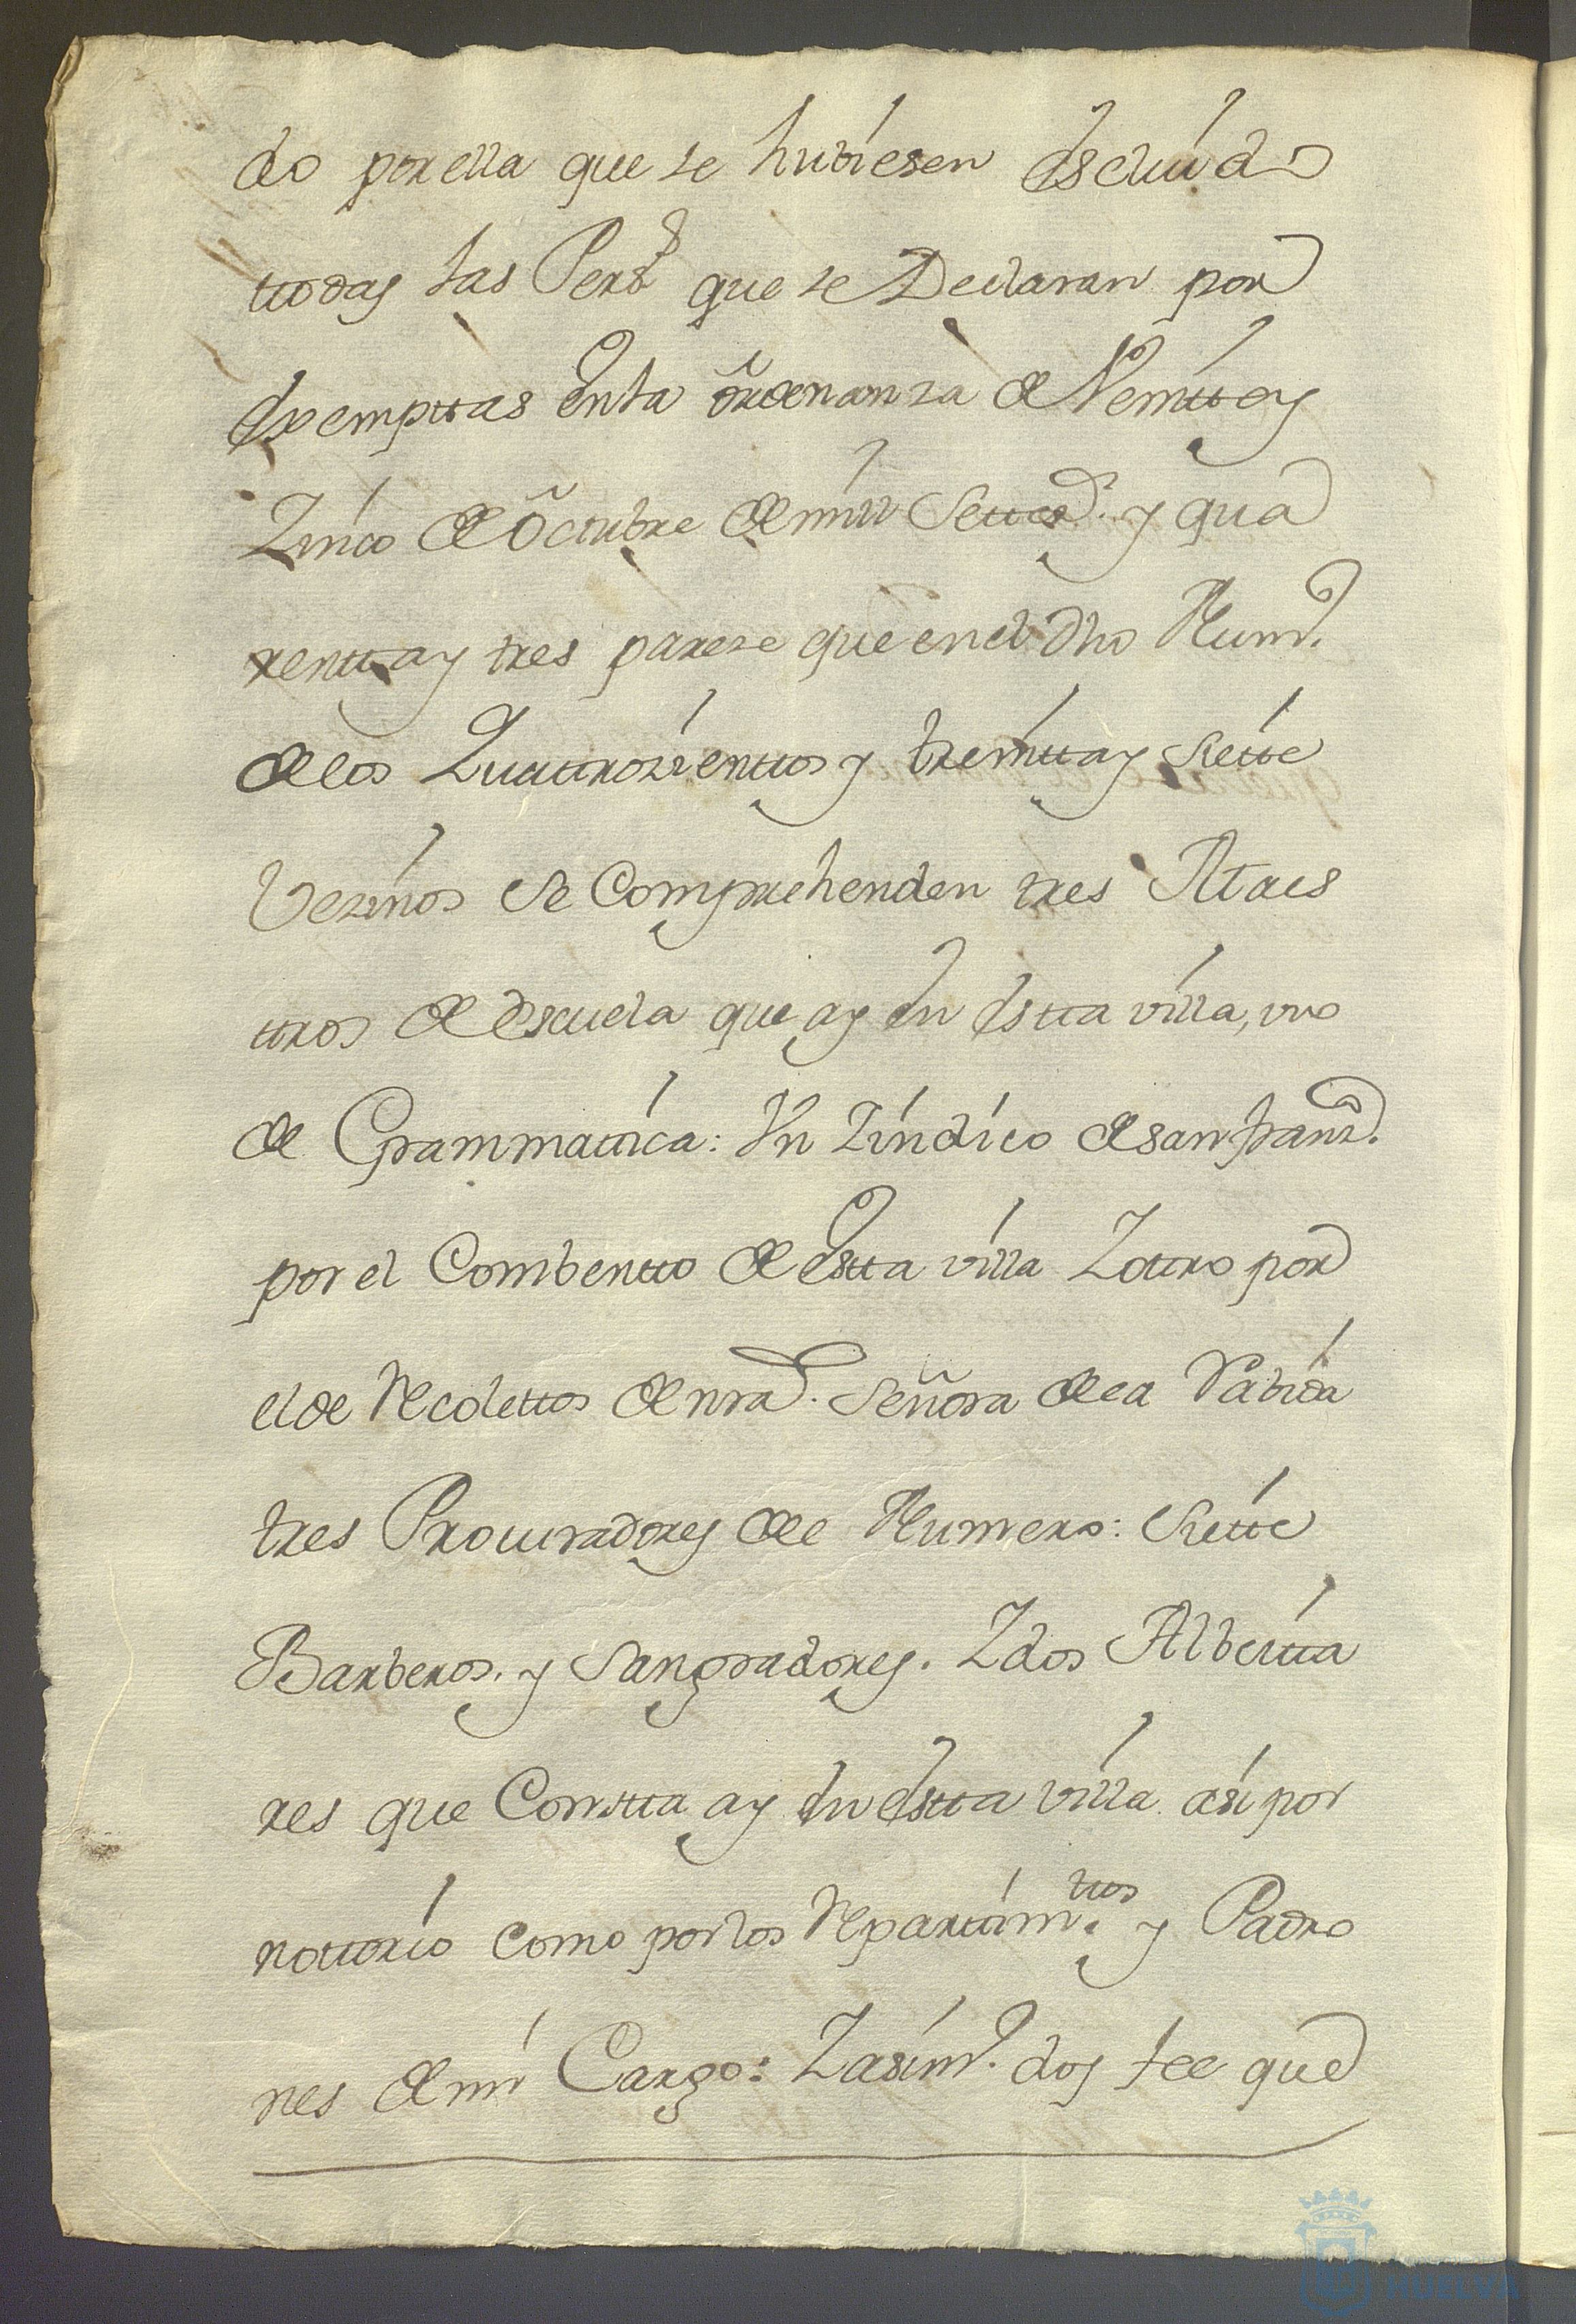 do por ella que se hubiesen Escluido
ttodas las Pers.s que se Declaran por
Exempttas En la ordenanza de Veintte y
Zinco de Octubre de mill Settez.s y qua
rentta y tres pareze que en el dho Num.o
de los Quattrozienttos y treintta y Siette
Vezinos Se Comprehenden tres Maes
ttros de Escuela que ay En Estta villa, uno
de Grammatica: Un Zindico de san franz.co
por el Combentto de Estta villa Y ottro por
el de Recolettos de nra. Señora de la Rabida
tres Procuradores de Numero: Siette
Barberos. y Sangradores. Y dos Albeitta
res que Constta ay En Estta villa asi por
nottorio como por los Repartim.ttos y Padro
nes de mi Cargo: Y asim.o doy fee que
HUELVA